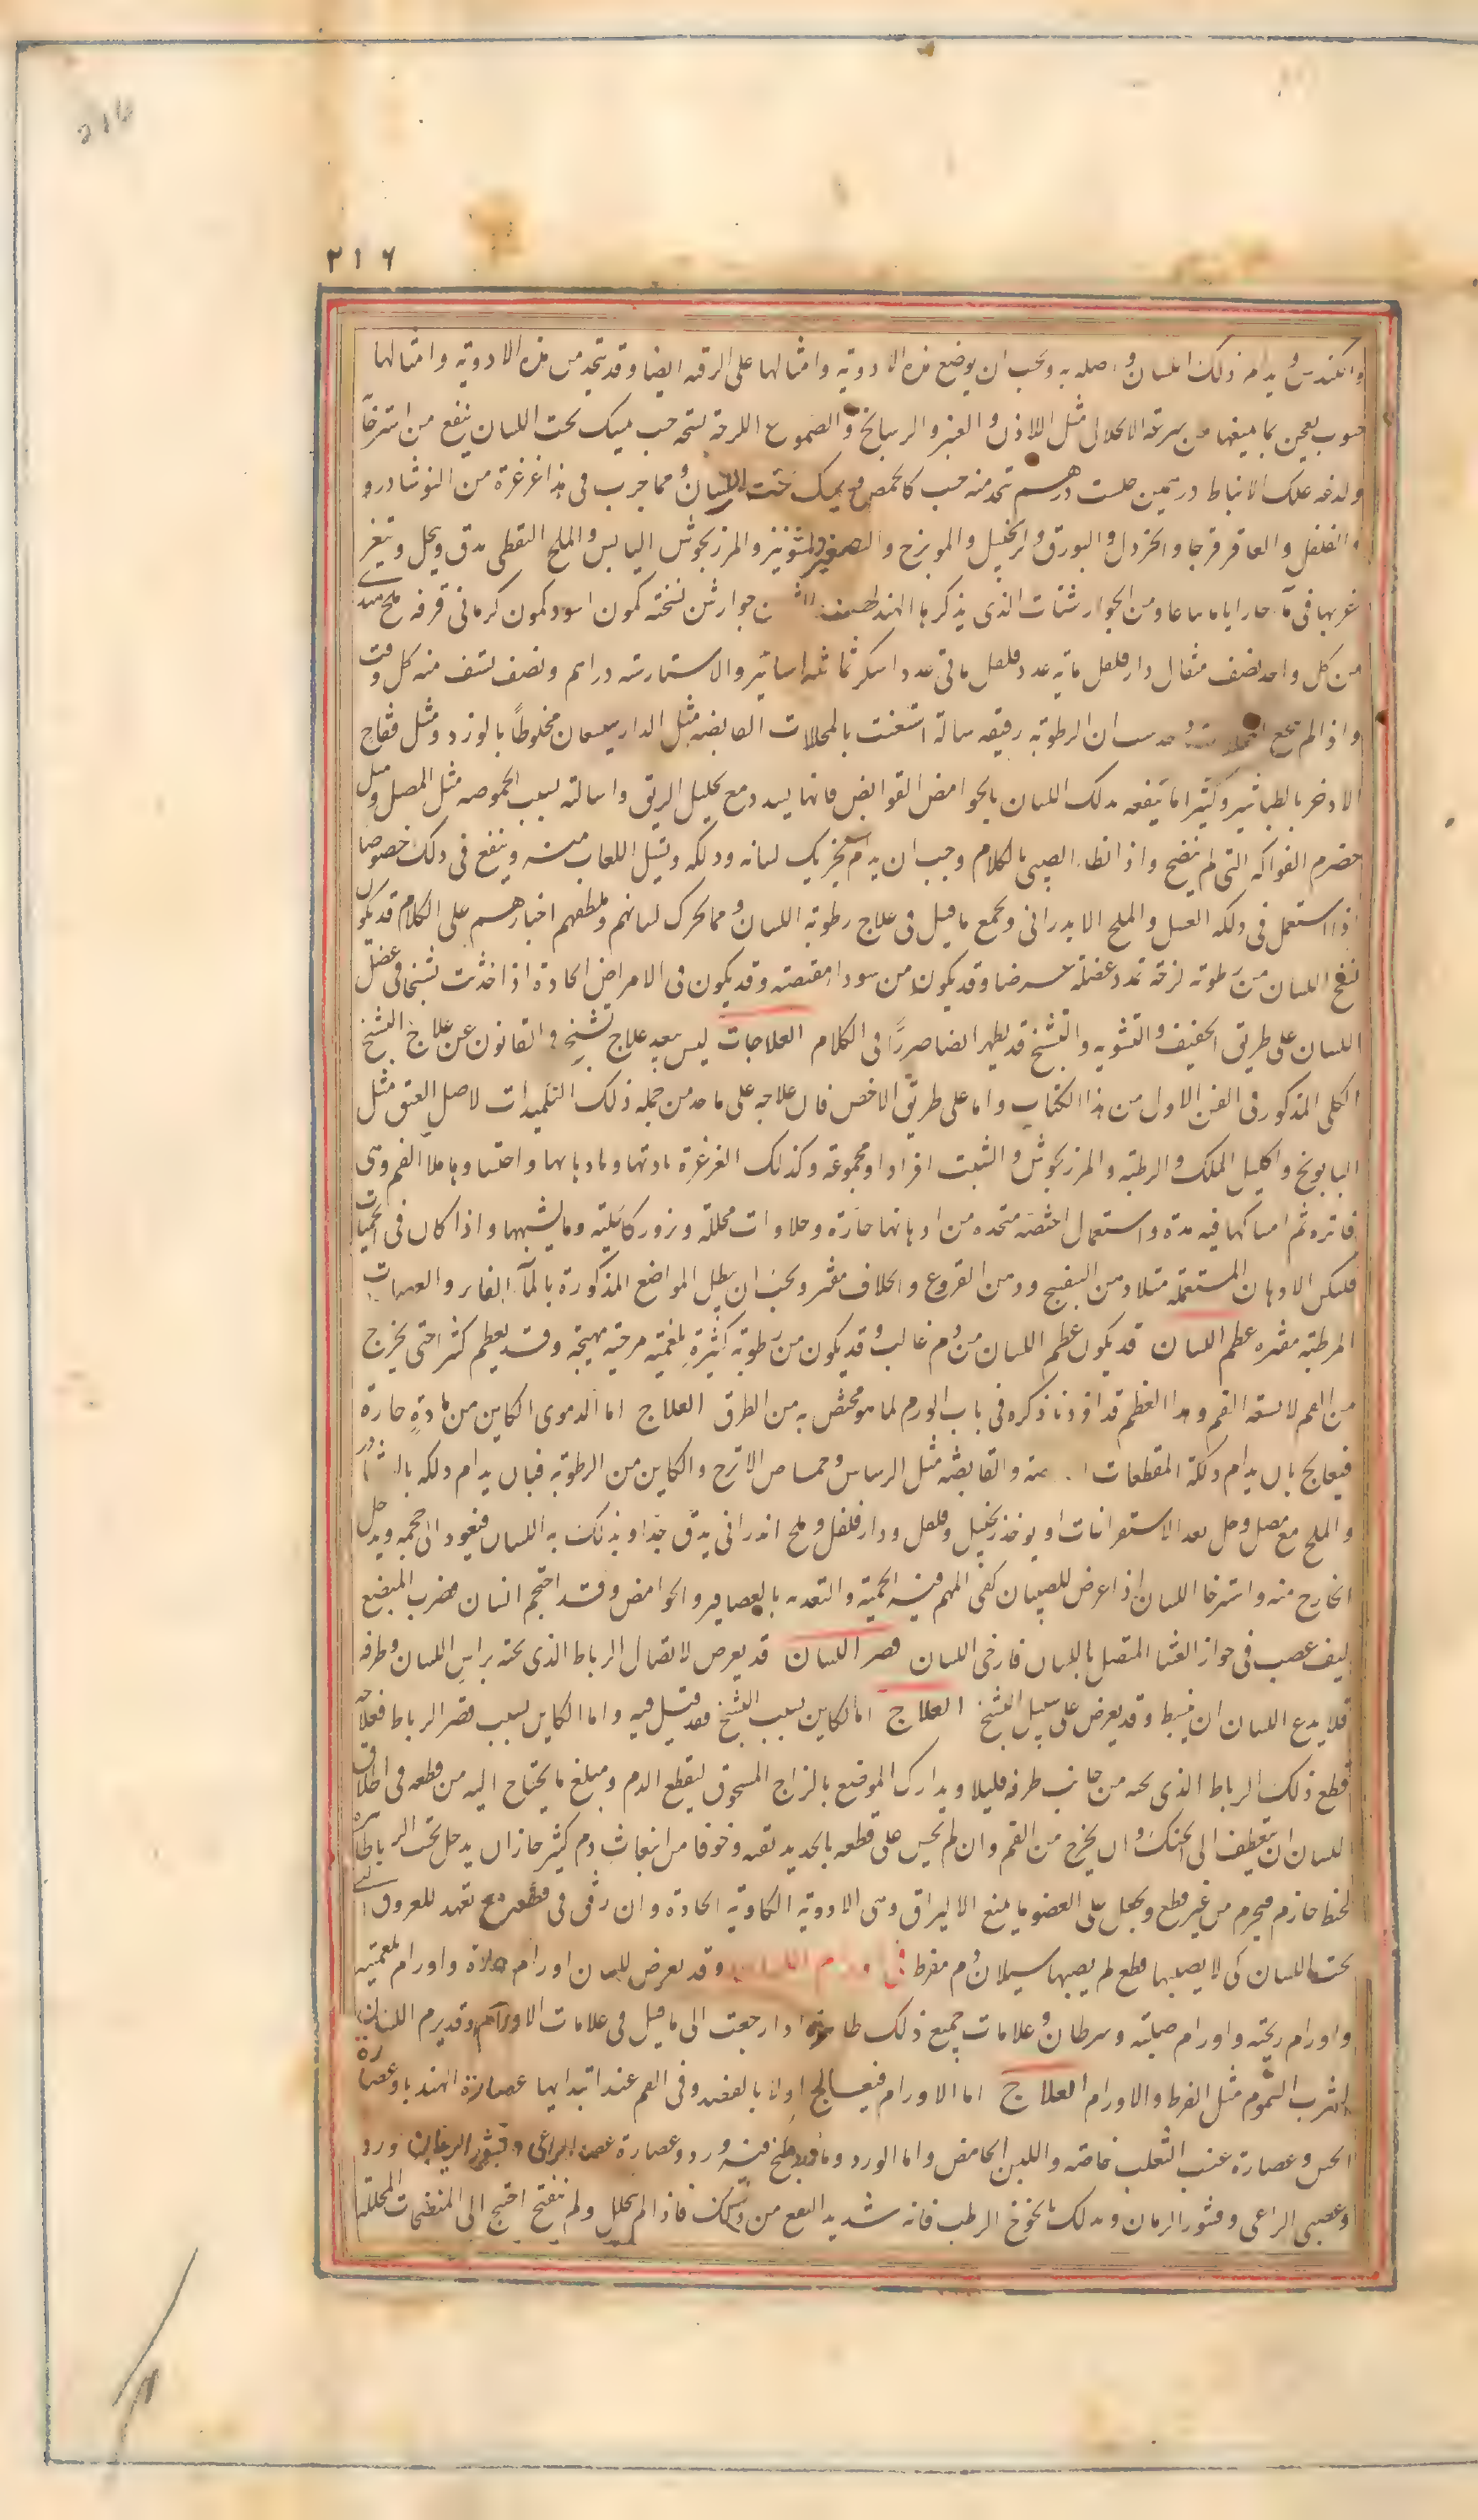 ٢١٦
والكندس ويدام ذلك اللسان واصله به ويجب ان يوضع هذه الادوية وامثالها على الرقبة ايضا وقد تتخذ من هذه الادوية وامثالها
حبوب يعجن بما يمنعها من سرعة الانحلال مثل اللاذن والعنبر والراتيانج والصموغ اللزجة نسخة حب يمسك تحت اللسان ينفع من استرخاء
ولدغه علك الانباط درهمين حلتيت درهم تتخذ منه حب كالحمص ويمسك تحت اللسان ومما جرب في هذا غرغرة من النوشادر و
الفلفل والعاقرقرحا والخردل والبورق والزنجبيل والمويزج والصعتر والشونيز والمرزنجوش اليابس والملح النفطي يدق وينخل ويتغر
غر بها في ماء حار اياما تباعا ومن الجوارشنات الذي يذكرها الهند جوارشن نسخته كمون اسود كمون كرماني قرفة ملح هندي
من كل واحد نصف مثقال دارفلفل مائة عدد فلفل مائتي عدد سكر ثمانية اساتير والاستار ستة دراهم ونصف يستف منه كل وقت
واذا لم ينجع ان الرطوبة رقيقة سيالة استعنت بالمحللات القابضة مثل الدارشيشعان مخلوطا بالورد ومثل فقاح
الاذخر بالطباشير وكثيرا ما ينفعه دلك اللسان بالحوامض القوابض فانها تشد مع تحليل الريق واسالته بسبب الحموضة مثل المصل ومثل
حصرم الفواكه التي لم ينضج واذا ابطا الصبي بالكلام وجب ان يدام تحريك لسانه ودلكه وتسيل اللعاب منه وينفع في ذلك خصوصا
اذا استعمل في دلكه العسل والملح الاندراني وجميع ما قيل في علاج رطوبة اللسان ومما يحرك لسانهم ويطلقهم اجبارهم على الكلام قد يكون
تشنج اللسان من رطوبة لزجة تمدد عضلة عرضا وقد يكون من سودا مقبضة وقد يكون في الامراض الحادة اذا احدثت تشنجا في عضل
اللسان على طريق التجفيف والتشويه والتشنج قد يظهر ايضا ضررا في الكلام العلاجات ليس يبعد علاج تشنج والقانون عن علاج التشنج
الكلي المذكور في الفن الاول من هذا الكتاب واما على طريق الاخص فان علاجه على ما حد من جملة ذلك التكميدات لاصل العنق مثل
البابونج واكليل الملك والرطبة والمرزنجوش والشبت افرادا ومجموعة وكذلك الغرغرة بادهانها واحتساؤها ملا الفم وهي
فاترة ثم امساكها فيه مدة واستعمال اخبصة متخذة من ادهانها حارة وحلاوات محللة وبزور كاللتية وما يشبهها واذا كان في الحميات
فليكن الادهان المستعملة مثل دهن البنفسج ودهن القرع والخلاف مفتر ويجب ان ينطل المواضع المذكورة بالماء الفاتر والعصارات
المرطبة مفترة عظم اللسان قد يكون عظم اللسان من دم غالب وقد يكون من رطوبة كثيرة بلغمية مرخية مهيجة وقد يعظم كثيرا حتى يخرج
من الفم لا يسعه الفم وهذا العظم قد افردنا ذكره في باب الورم لما هو مختص به من الطرق العلاج اما الدموي الكاين من مادة حارة
فيعالج بان يدام دلكه المقطعات والقابضة مثل الريباس وحماض الاترج والكاين من الرطوبة فبان يدام دلكه بالنوشادر
والملح مع مصل وخل بعد الاستفراغات او يوخذ زنجبيل وفلفل ودارفلفل وملح اندراني يدق جدا ويدلك به اللسان فيعود الى حجمه ويدخل
الخارج منه واسترخا اللسان اذا عرض للصبيان كفى المهم فيه الحمية والتغذية بالعصافير والحوامض وقد احتجم انسان فضرب المبضع
ليف عصب في جواز الغشا المتصل باللسان فارخى اللسان قصر اللسان قد يعرض لاتصال الرباط الذي تحته براس اللسان وطرفه
فلا يدع اللسان ان ينبسط وقد يعرض على سبيل التشنج العلاج اما الكاين بسبب التشنج فقد قيل فيه واما الكاين بسبب قصر الرباط فعلاجه
قطع ذلك الرباط الذي تحته من جانب طرفه قليلا ويدارك الموضع بالزاج المسحوق ليقطع الدم ومبلغ ما يحتاج اليه من قطعه في اطلاق
اللسان ان ينعطف الى الحنك وان يخرج من الفم وان لم يحسن على قطعه بالحديد تقية وخوفا من انبعاث دم كثير جاز ان يدخل تحت الرباط ابرة
بخيط خازم فيخرم من غير قطع ويجعل على العضو ما يمنع الالتزاق وهي الادوية الكاوية الحادة وان رفق في قطعه مع تعهد للعروق التي
تحت اللسان كي لا يصيبها قطع لم يصبها سيلان دم مفرط في اورام اللسان وقد يعرض للسان اورام حارة واورام بلغمية
واورام ريحية واورام صلبة وسرطان وعلامات جميع ذلك ظاهرة اذا رجعت الى ما قيل في علامات الاورام وقد يرم اللسان
لشرب السموم مثل الفطر والاورام العلاج اما الاورام فيعالج اولا بالفصد وفي الفم عند ابتدائها عصارة الهندبا وعصارة
الخس وعصارة عنب الثعلب خاصة واللبن الحامض واما الورد وما طبخ فيه ورد وعصارة عصا الراعي وقشور الرمان ورد
وعصى الراعي وقشور الرمان ودلك بالخوخ الرطب فانه شديد النفع من ذلك فاذا لم يحلل ولم ينفتح احتيج الى المنضجات المحللة